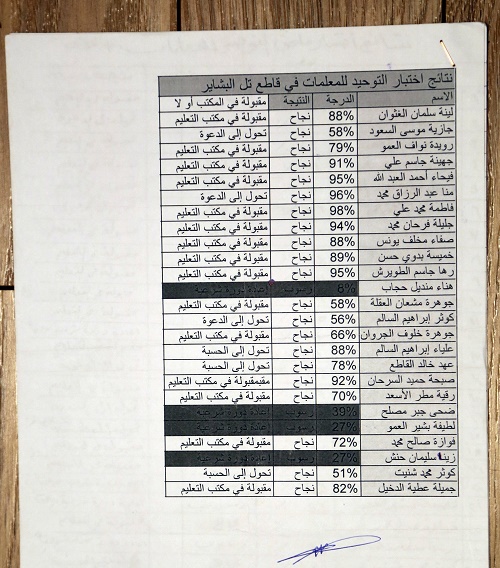 نتائج اختبار التوحيد للمعلمات في قاطع تل البشاير
الاسم الدرجة النتيجة مقبولة في المكتب أو لا
لينة سلمان الغثوان 88% نجاح مقبولة في مكتب التعليم
جازية موسى السعود 58% نجاح تحول إلى الدعوة
رويدة نواف العمو 79% نجاح مقبولة في مكتب التعليم
جهينة جاسم علي 91% نجاح مقبولة في مكتب التعليم
فيحاء أحمد العبد الله 95% نجاح مقبولة في مكتب التعليم
منا عبد الرزاق محمد 96% نجاح تحول إلى الدعوة
فاطمة محمد علي 98% نجاح مقبولة في مكتب التعليم
جليلة فرحان محمد 94% نجاح مقبولة في مكتب التعليم
صفاء مخلف يونس 88% نجاح مقبولة في مكتب التعليم
خميسة بدوي حسن 89% نجاح مقبولة في مكتب التعليم
رها جاسم الطويرش 95% نجاح مقبولة في مكتب التعليم
هناء منديل حجاب 8% رسوب إعادة دورة شرعية
جوهرة مشعان العقلة 58% نجاح مقبولة في مكتب التعليم
كوثر إبراهيم السالم 56% نجاح تحول إلى الدعوة
جوهرة خلوف الجروان 66% نجاح مقبولة في مكتب التعليم
علياء إبراهيم السالم 88% نجاح تحول إلى الحسبة
عهد خالد القاطع 78% نجاح تحول إلى الحسبة
صبحة حميد السرحان 92% نجاح مقبمقبولة في مكتب التعليم
رقية مطر الأسعد 70% نجاح مقبولة في مكتب التعليم
ضحى جبر مصلح 39% رسوب إعادة دورة شرعية
لطيفة بشير العمو 27% رسوب إعادة دورة شرعية
فوازة صالح محمد 72% نجاح مقبولة في مكتب التعليم
زينة سليمان حنش 27% رسوب إعادة دورة شرعية
كوثر محمد شتيت 51% نجاح تحول إلى الحسبة
جميلة عطية الدخيل 82% نجاح مقبولة في مكتب التعليم